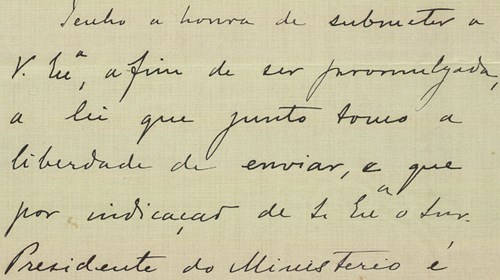 Tenho a honra de submeter a
V. Exª, a fim de ser promulgada,
a lei que junto tomo a
liberdade de enviar, e que
por indicaçaõ de S. Exª o Snr.
Presidente do Ministerio é